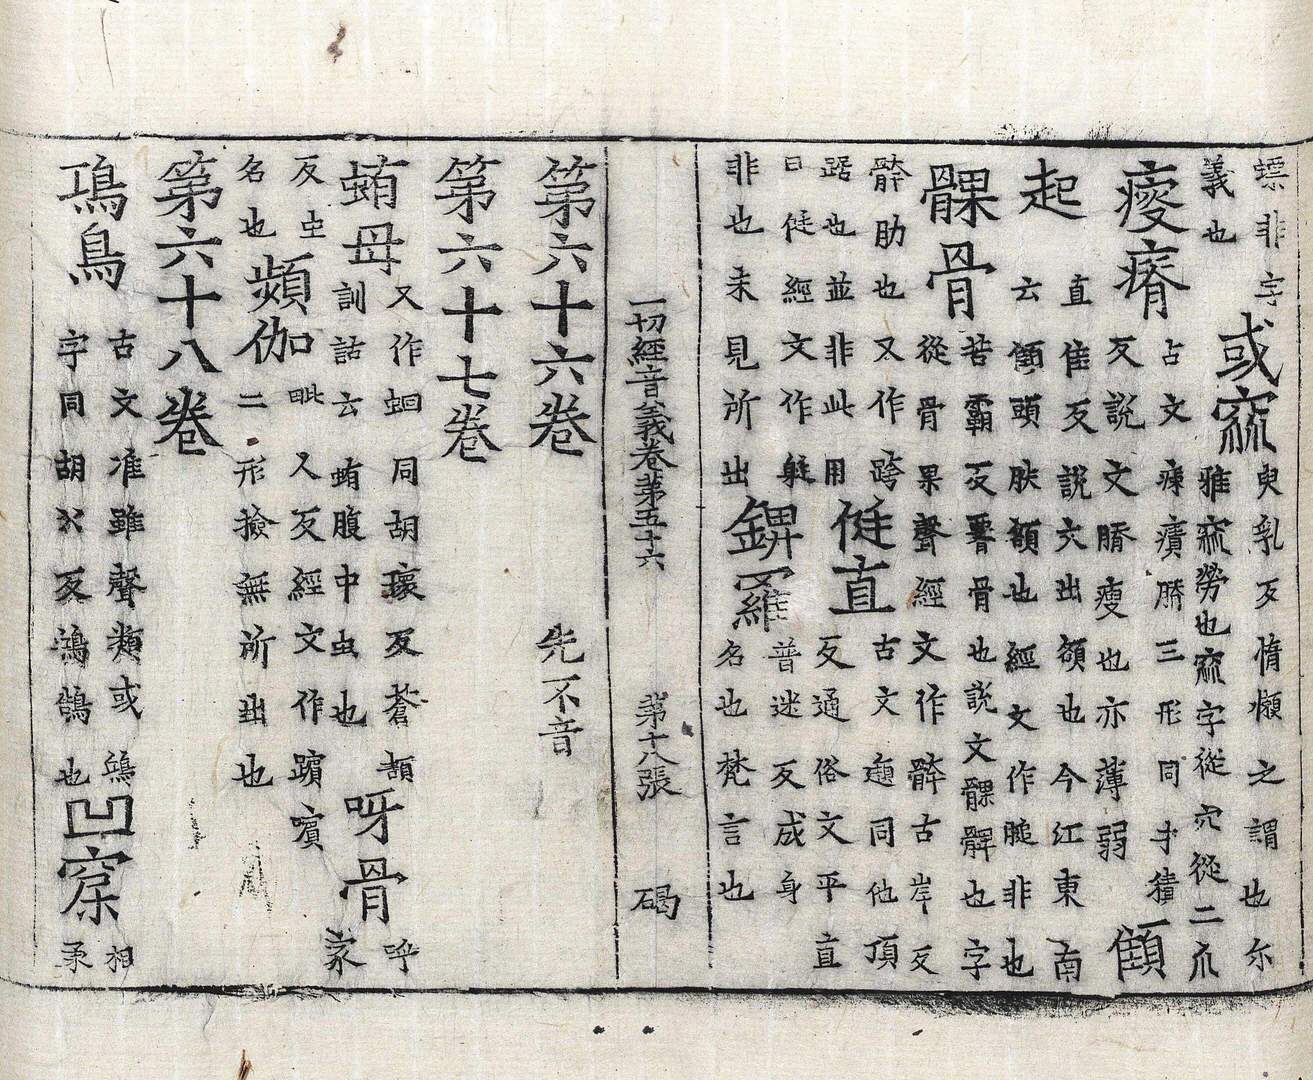 螵非字
義也
或窳
臾乳反惰嬾之謂也尔
雅窳勞也窳字從穴從二爪
瘦瘠
古文𤷃㿉膌三形同才積
反説文膌瘦也亦薄弱
顀
起
直隹反説文出額也今江東南
云顀頭胅額也經文作膇非也
髁骨
苦霸反髖骨也説文髁髀也字
從骨果聲經文作骭古岸反
骭肋也又作跨
踞也並非此用
侹直
古文頲同他頂
反通俗文平直
曰侹經文作艇
非也未見所出
錍羅
普迷反成身
名也梵言也
一切經音義卷第五十六 第十八張 碣
第六十六卷 先不音
第六十七卷
蛕母
又作蛔同胡瓌反蒼頡
訓詁云蛕腹中虫也
呀骨
呼
家
反虫
名也
頻伽
毗人反經文作蠙嚬
二形撿無所出也
第六十八卷
鳿鳥
古文准雖聲類或鴻
字同胡公反鴻鵠也
凹窊
相
承